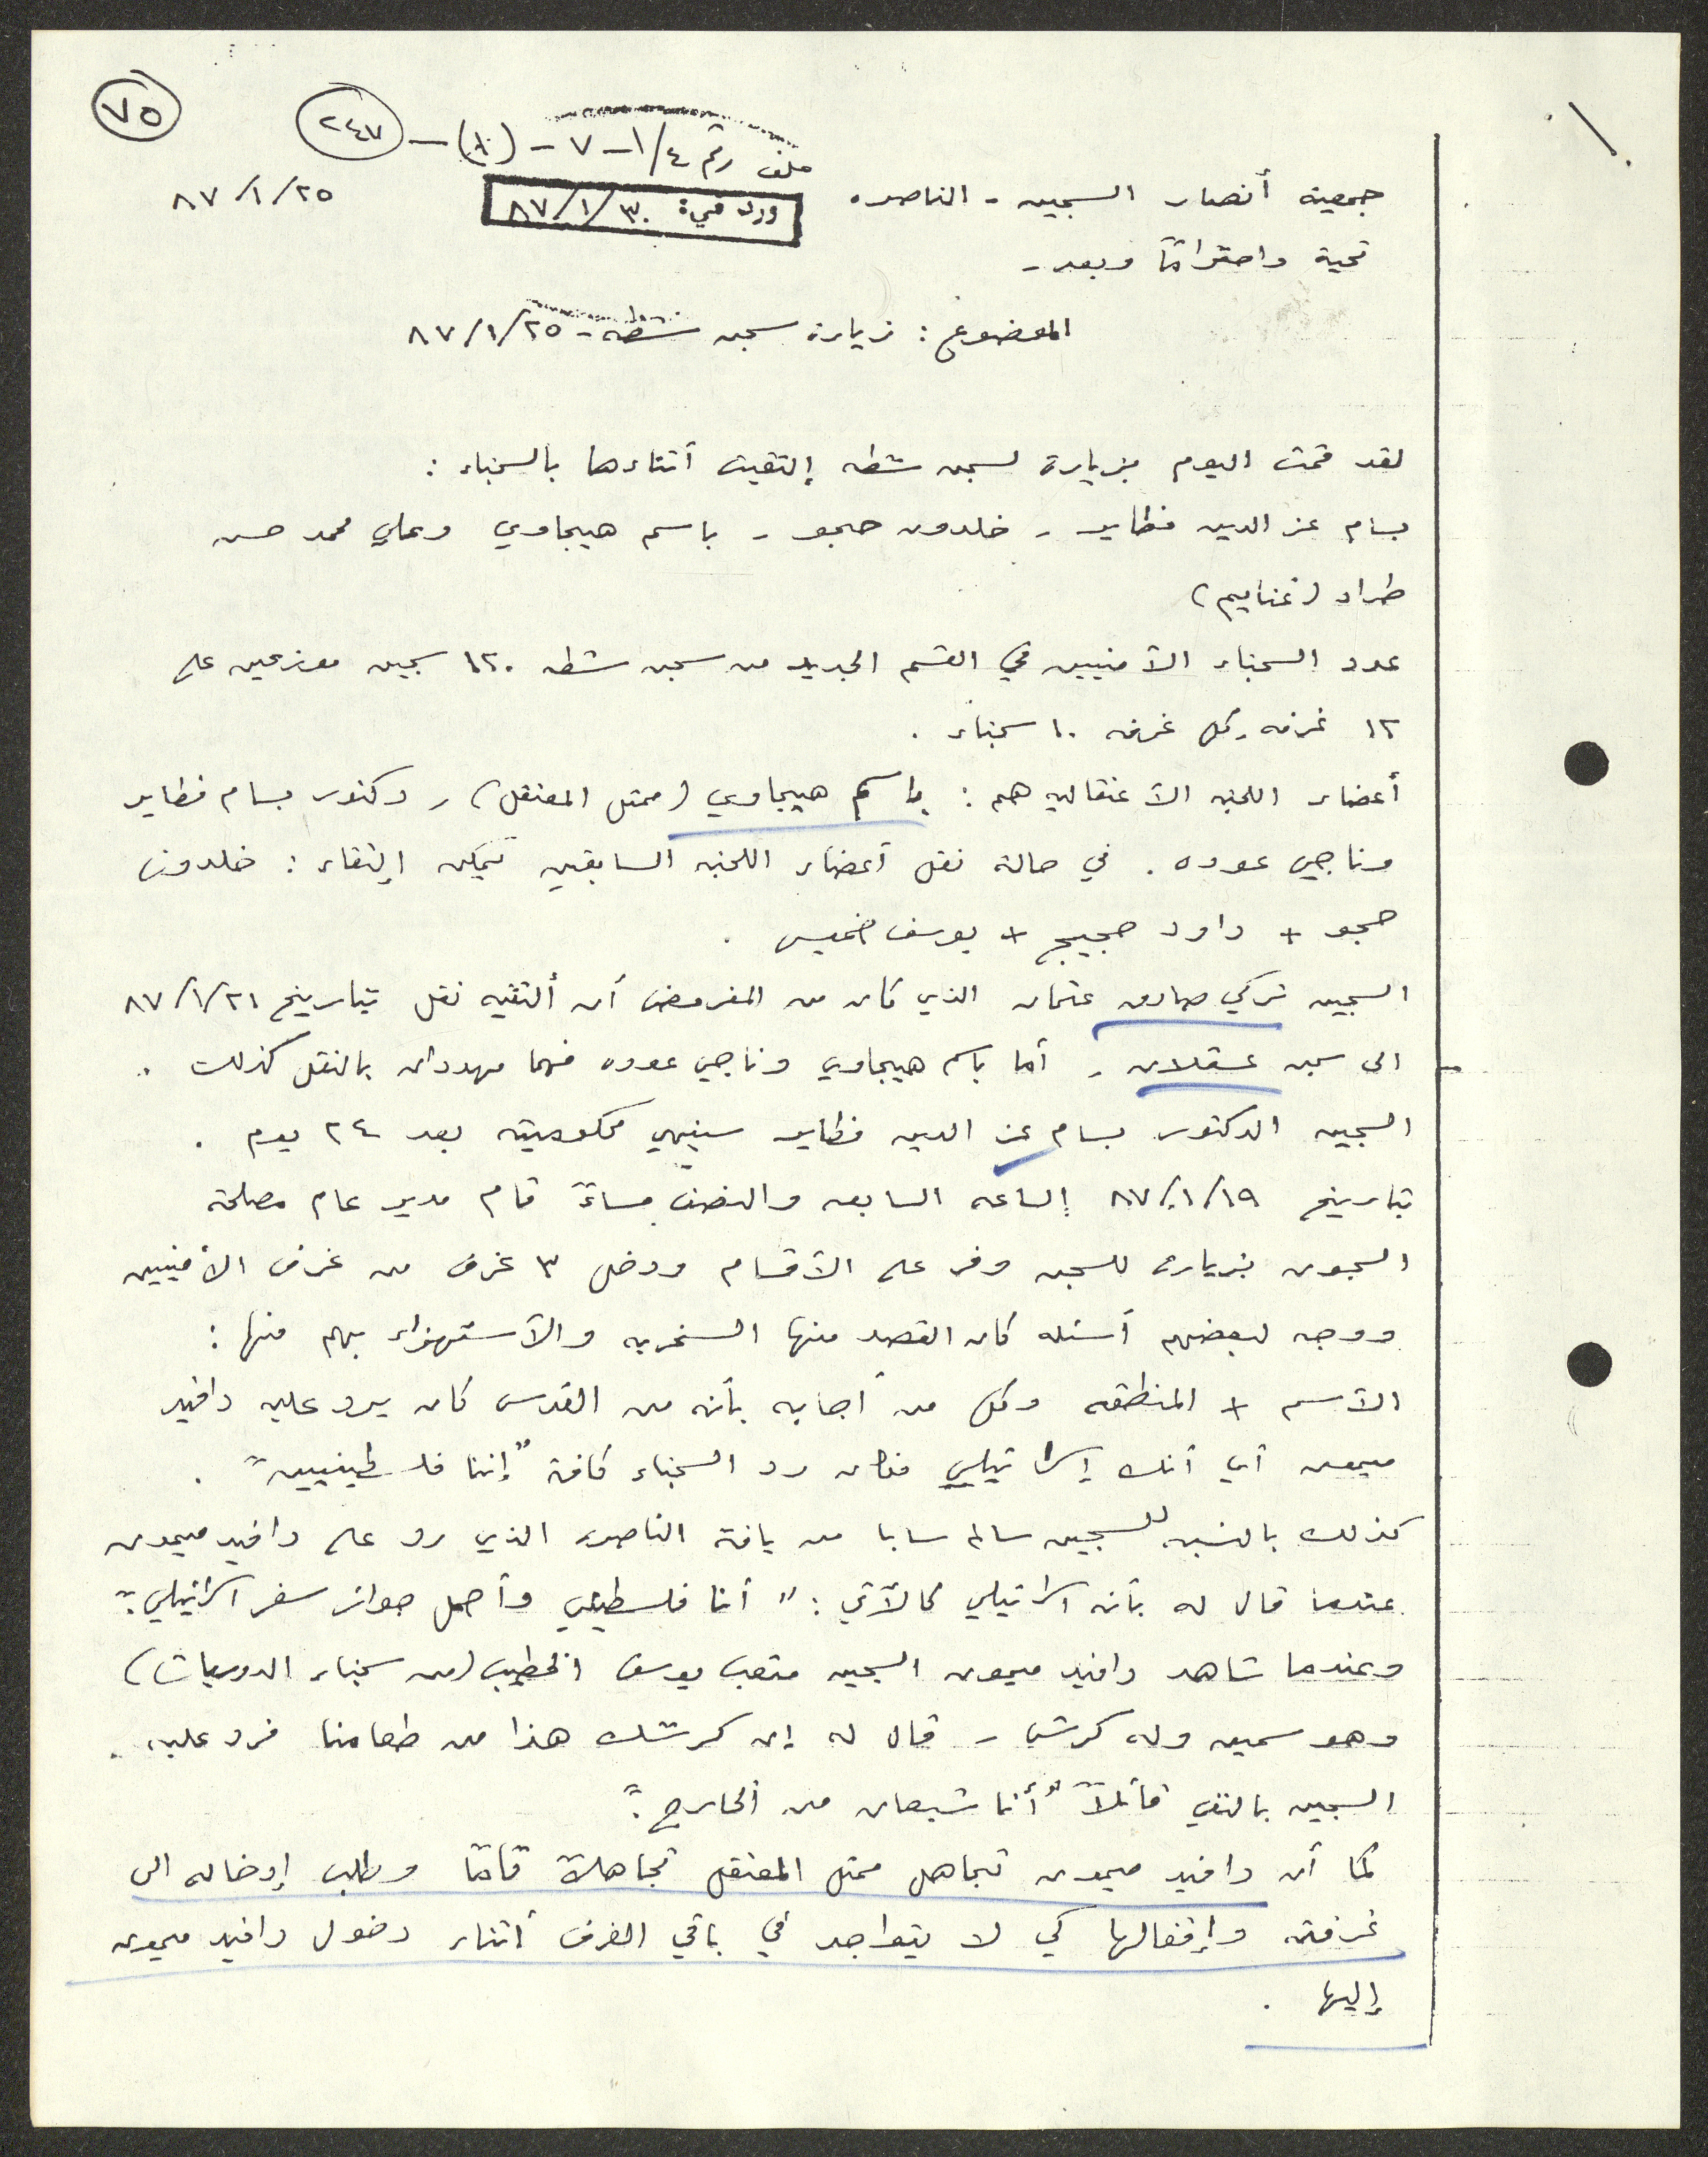 ٧٥
ملف رقم ٤/١ - ٧ - (٨) - ٢٤٧
جمعية أنصار السجين - الناصره
ورد في: ٣٠/١/٨٧
٢٥/١/٨٧
تحية واحترامًا وبعد -
الموضوع : زيارة سجن شطه - ٢٥/١/٨٧
لقد قمت اليوم بزيارة لسجن شطه إلتقيت أثناءها بالسجناء :
بسام عز الدين فطاير - خلدون حجو - باسم هيجاوي وعلي محمد حسن
طراد (غنايم)
عدد السجناء الأمنيين في القسم الجديد من سجن شطه ١٢٠ سجين موزعين على
١٢ غرفه ,كل غرفه ١٠ سجناء .
أعضاء اللجنه الأعتقاليه هم : باسم هيجاوي (ممثل المعتقل) , دكتور بسام فطاير
وناجي عوده . في حالة نقل أعضاء اللجنه السابقين يمكن إلتقاء : خلدون
حجو + داود حجيج + يوسف خميس .
السجين تركي صادق عثمان الذي كان من المفروض أن ألتقيه نقل بتاريخ ٢١/١/٨٧
الى سجن عسقلان , أما باسم هيجاوي وناجي عوده فهما مهددان بالنقل كذلك .
السجين الدكتور بسام عز الدين فطاير سينهي محكوميته بعد ٢٤ يوم .
بتاريخ ١٩/١/٨٧ الساعه السابعه والنصف مساءً قام مدير عام مصلحة
السجون بزياره للسجن ومر على الأقسام ودخل ٣ غرف من غرف الأمنيين
ووجه لبعضهم أسئله كان القصد منها السخريه والأستهزاء بهم منها :
الأسم + المنطقه وكل من أجابه بأنه من القدس كان يرد عليه دافيد
ميمون أي أنك إسرائيلي فكان رد السجناء كافة "إننا فلسطينيين" .
كذلك بالنسبه للسجين سالم سابا من يافة الناصره الذي رد على دافيد ميمون
عندما قال له بأنه اسرائيلي كالآتي : "أنا فلسطيني وأحمل جواز سفر اسرائيلي".
وعندما شاهد دافيد ميمون السجين متعب يوسف الخطيب (من سجناء الدوريات)
وهو سمين وله كرش , قال له إن كرشك هذا من طعامنا فرد عليه
السجين بالنفي قائلاً "أنا شبعان من الخارج".
كما أن دافيد ميمون تجاهل ممثل المعتقل تجاهلاً تامًا وطلب إدخاله الى
غرفته وإقفالها كي لا يتواجد في باقي الغرف أثناء دخول دافيد ميمون
إليها .